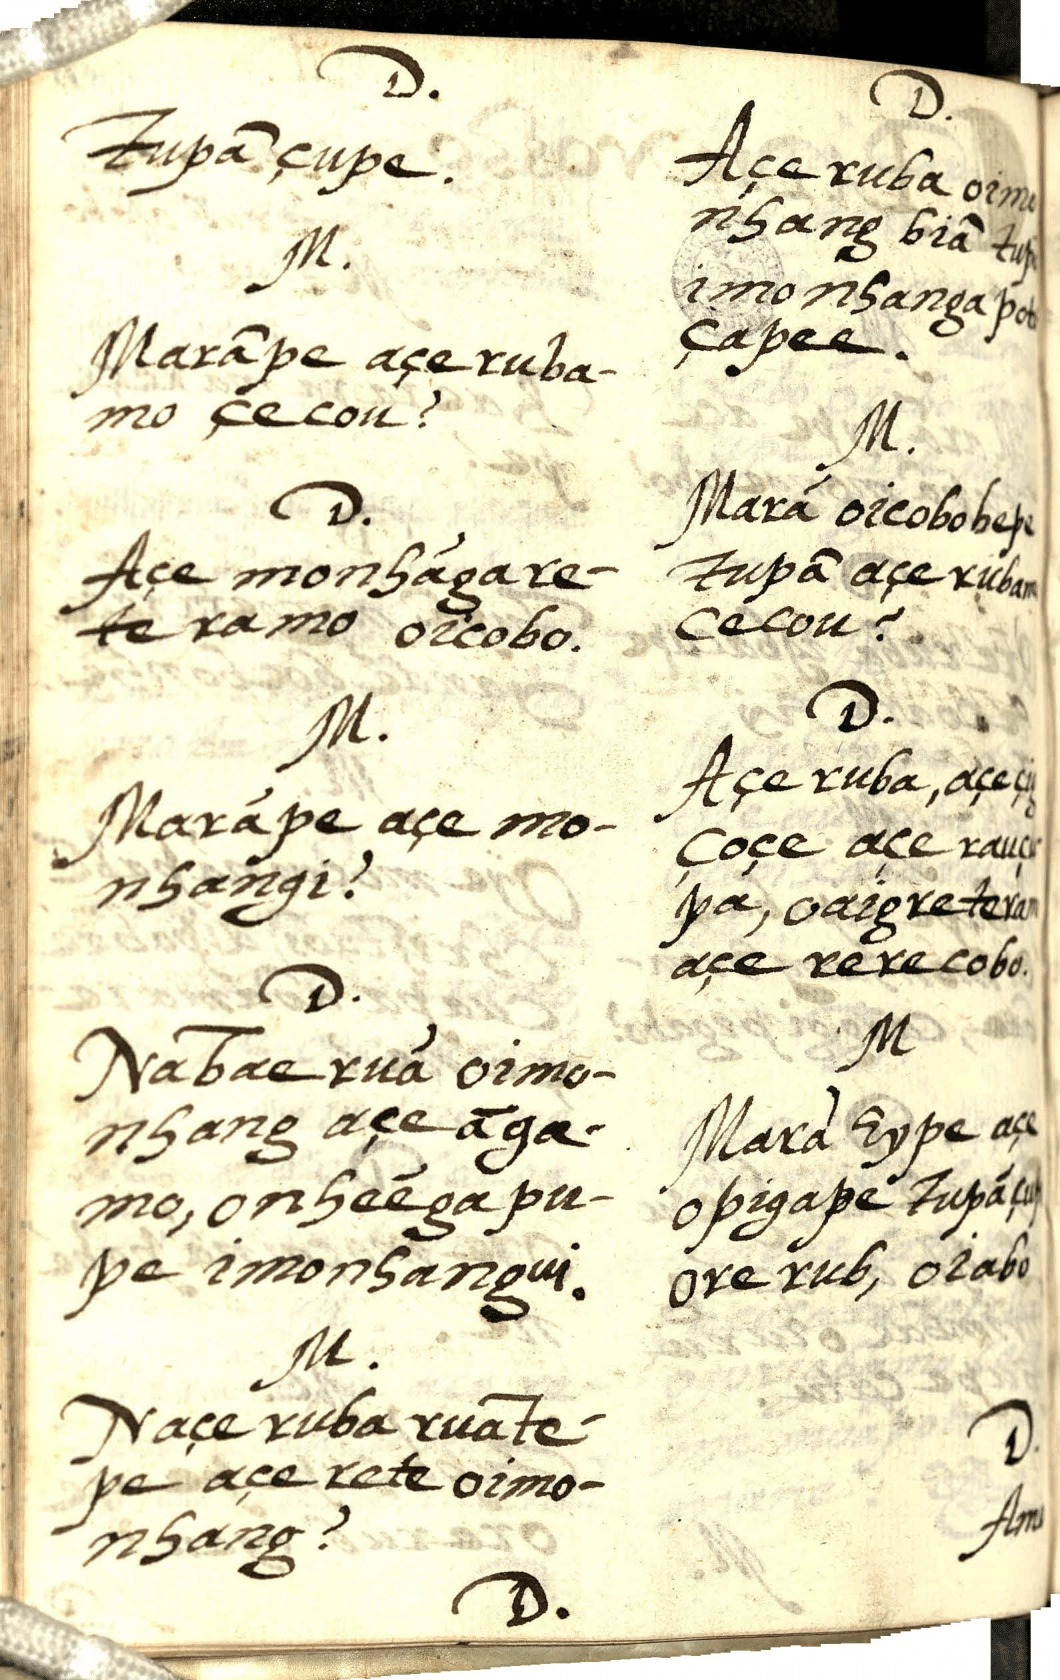 D.
Tupã çupe.
M.
Marãpe açe ruba-
mo çecou?
D.
Açe monhágare-
te ramo oicobo.
M.
Marápe açe mo-
nhangi?
D.
Nabae ruã oimo-
nhang açe ãga-
mo, onheẽga pu-
pe imonhangui.
M.
Naçe ruba ruãte-
pe açe rete oimo-
nhang?
D.
D.
Açe ruba
nhang biã
imonhanga
çapee.
M.
Mará oicobobepe
tupã açe
cecou?
D.
Açe ruba, açe
çoçe açe
pa,
açe rerecobo.
M
Marà Eype açe
opigape
ore rub, oiabo
D.